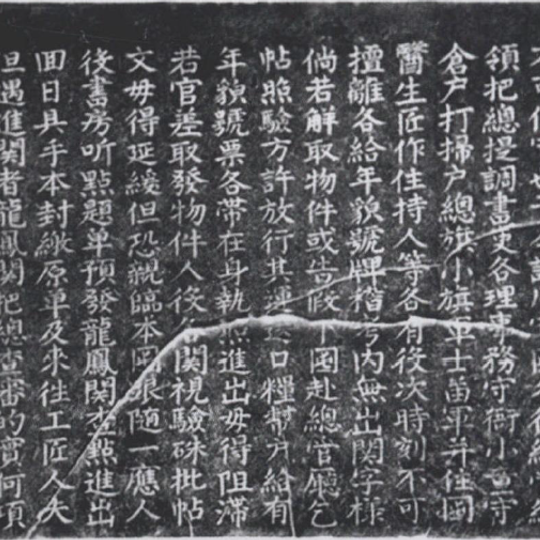 領把總提調書吏各理事務守衙小亜守
倉户打掃户總旗小旗軍士笛軍并住囤
醫生匠作住持人等各有役次時刻不可
擅離各給年貌號牌稽内無出関字様
倘若解取物件或告假下囤赴總官廳乞
帖照驗方許放行其口糧幇户給有
年貌號票各帶在身執照進出毋得阻滯
若官差取發物件人役各関視驗硃批帖
文毋得延緩但恐親臨本囤跟随一應人
後書房听點題單預發龍鳳関查點進出
囬日具手本封繳原單及来往工匠人夫
旦遇進関者龍鳳関把總查審的實何項